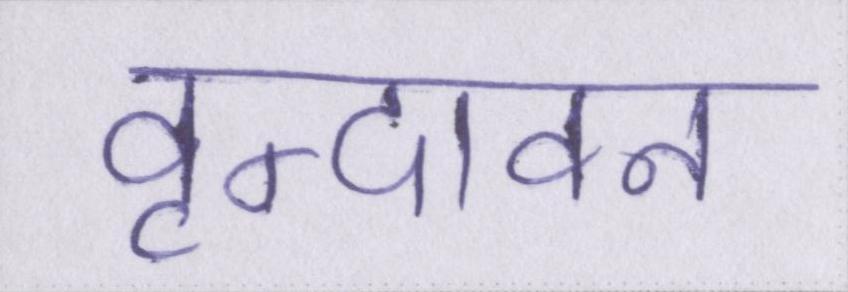 वृन्दावन